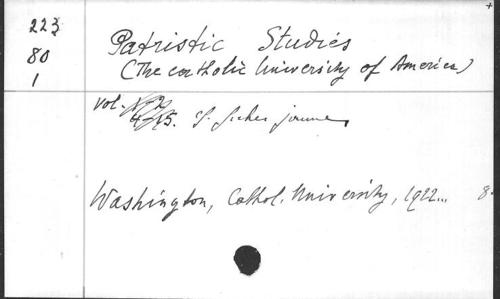 223
80
1
Patristic Studies
(The catholic University of America)
vol. 1-2
4-15. S. fiches jaunes
Washington, Cathol. University, 1922... 8-